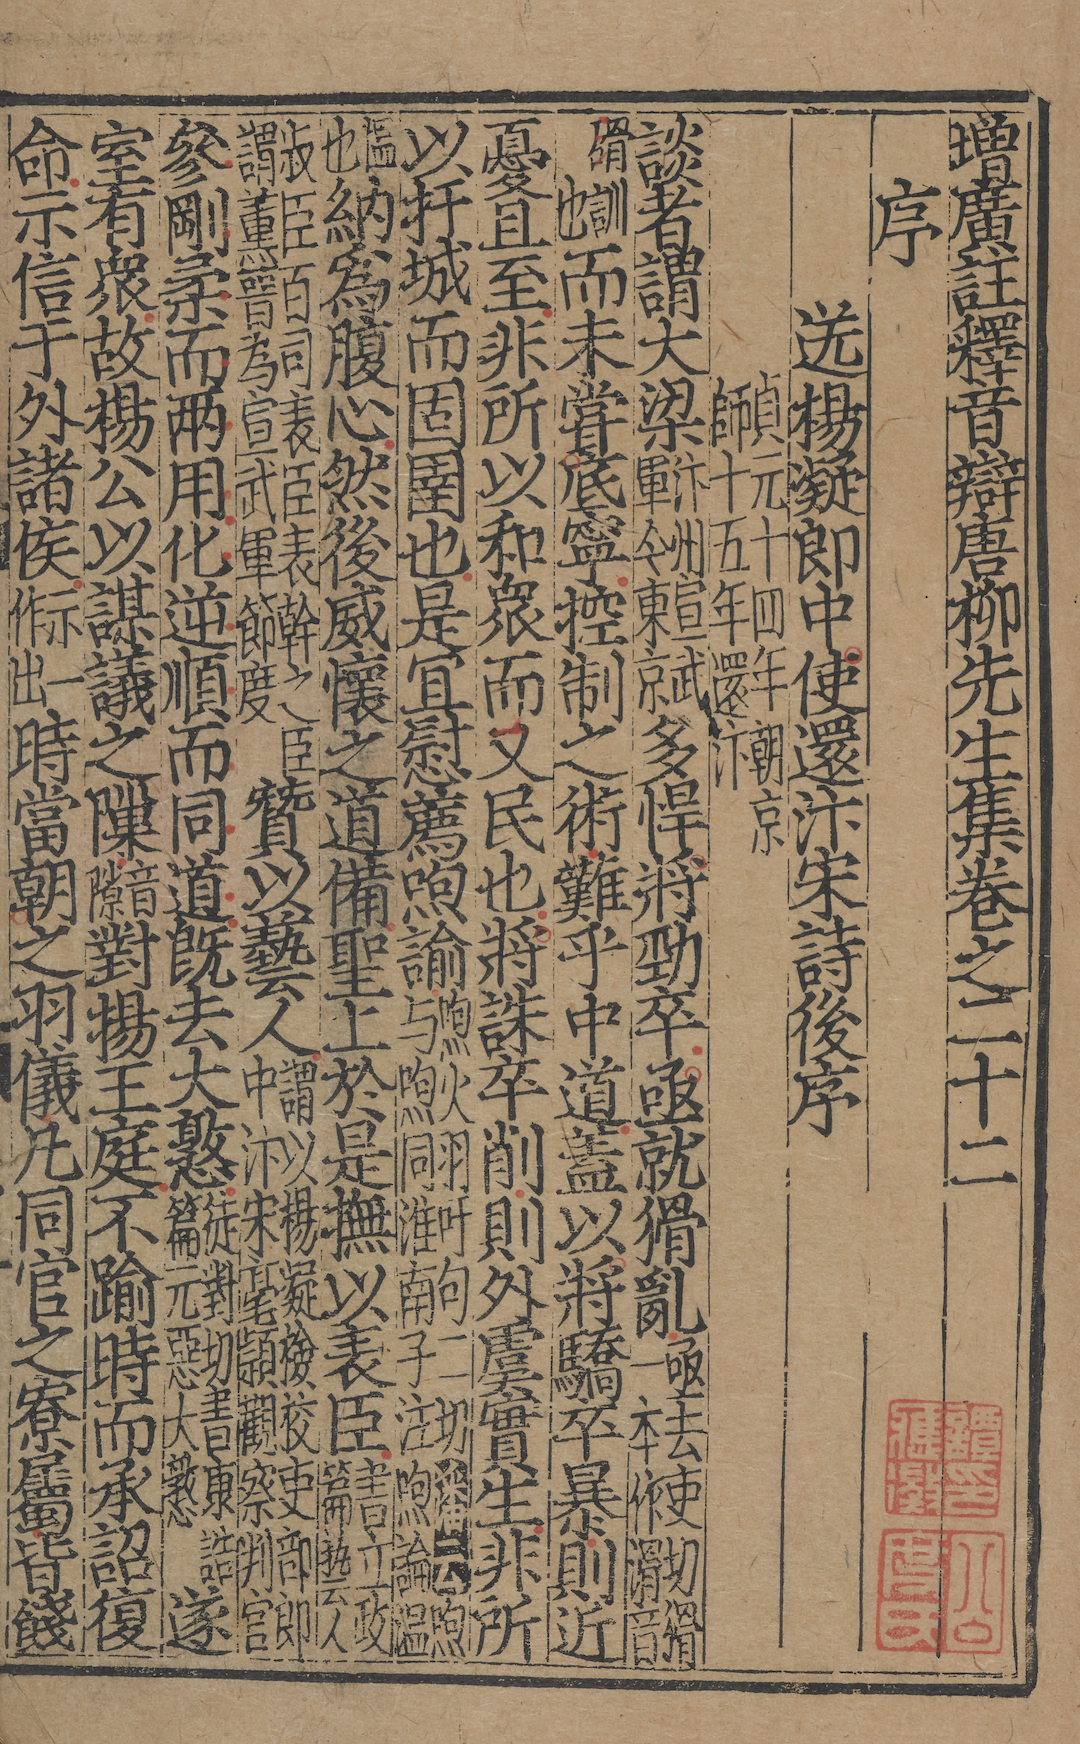 增廣註釋音辯唐柳先生集卷之二十二
序
送楊凝郎中使還汴宋詩後序
貞元十四年朝京
師十五年還汴
談者謂大梁汴州宣武軍今東京多悍將勁卒亟就猾亂亟去吏切猾一本作滑音
滑訓也而未嘗底寧控制之術難乎中道蓋以將驕卒暴則近
憂且至非所以和衆而乂民也將誅卒削則外虞實生非所
以扞城而固圉也是宜慰薦煦諭煦火羽吁句二切潘云煦与喣同淮南子注煦諭温
嫗也納爲腹心然後威懷之道備聖上於是撫以表臣書立政篇藝人
表臣百司表臣表幹之臣謂董晉為宣武軍節度贊以藝人謂以楊凝檢校吏部郎中汴宋亳潁觀察判官
參剛柔而兩用化逆順而同道既去大憝徒對切書康誥篇元惡大憝遂
室有衆故楊公以謀議之隙音隙對揚王庭不踰時而承詔復
命示信于外諸侯示一作出時當朝之羽儀凡同官之寮屬皆餞